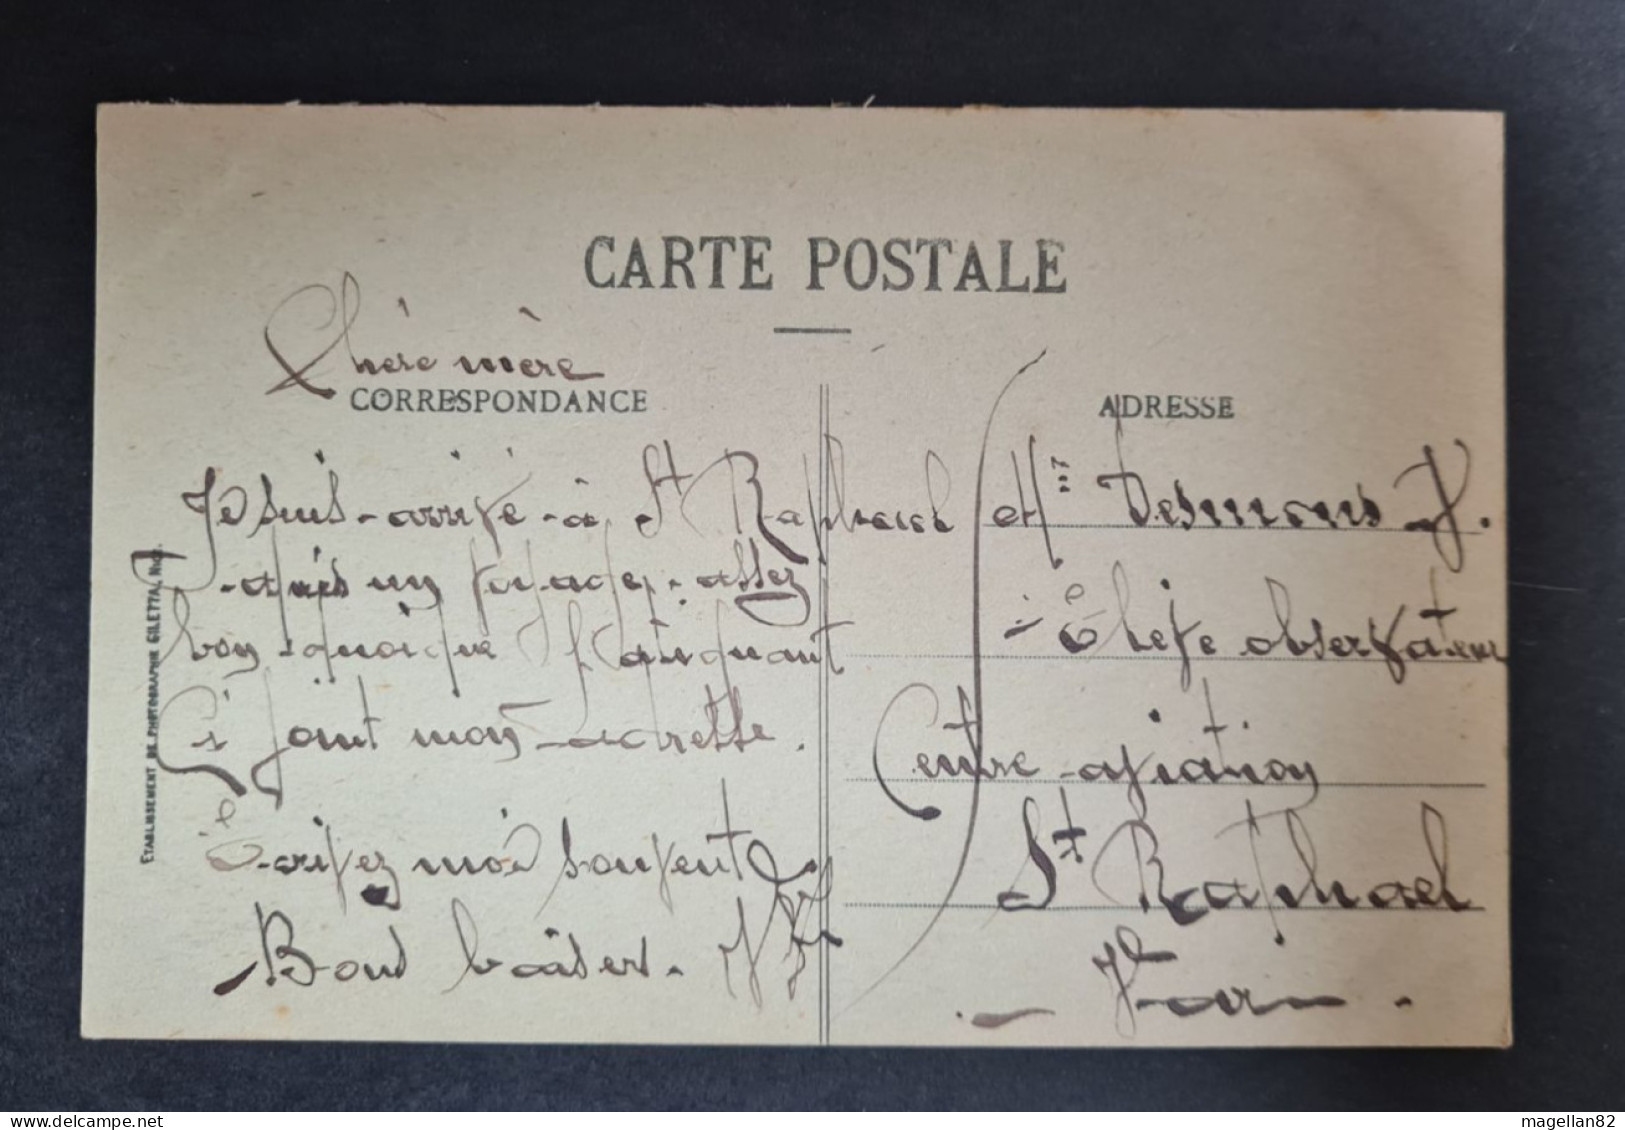 CARTE POSTALE
Chère mère
CORRESPONDANCE
Je suis arrivé à St Raphael
après un voyage assez
bon quoique fatiguant
Ci joint mon adresse.
Ecrivez moi souvent
Bons baisers.
ADRESSE
Desmons
Elève observateur
Centre aviation
St Raphael
Var
ETABLISSEMENT DE PHOTOGRAPHIE GILETTA, NICE.
magellan82